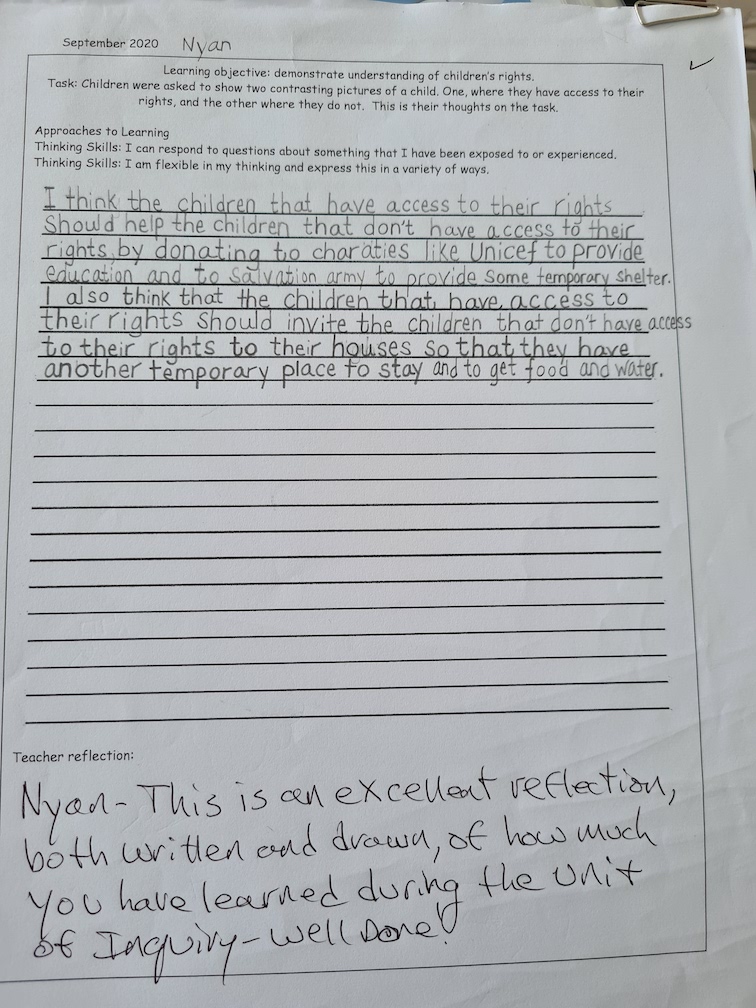 September 2020 Nyan
Learning objective: demonstrate understanding of children's rights.
Task: Children were asked to show two contrasting pictures of a child. One, where they have access to their
rights, and the other where they do not. This is their thoughts on the task.
Approaches to Learning
Thinking Skills: I can respond to questions about something that I have been exposed to or experienced.
Thinking Skills: I am flexible in my thinking and express this in a variety of ways.
I think the children that have access to their rights
Should help the children that don't have access to their
rights, by donating to charaties like Unicef to provide
education and to Salvation army to provide some temporary shelter.
I also think that the children that have access to
their rights should invite the children that don't have access
to their rights to their houses so that they have
another temporary place to stay and to get food and water.
Teacher reflection:
Nyan- This is an excellent reflection,
both written and drawn, of how much
you have learned during the Unit
of Inquiry- Well Done!